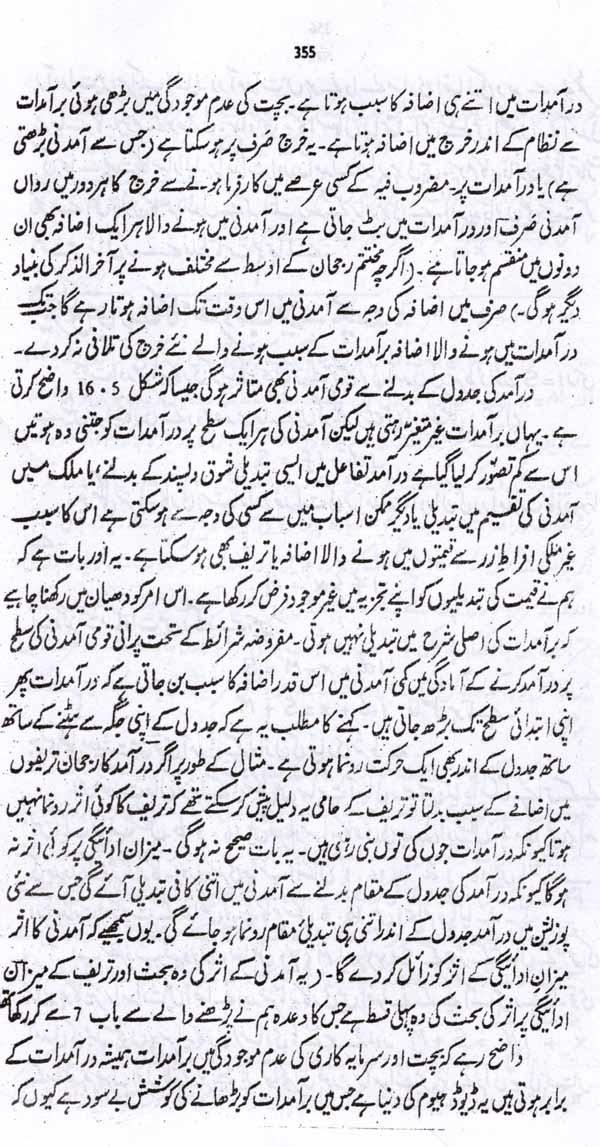 355
در آمدات میں اتنے ہی اضافہ کا سبب ہوتا ہے۔ بچت کی عدم موجودگی میں بڑھی ہوئی برآمدات
سے نظام کے اندر خرچ میں اضافہ ہوتا ہے۔ یہ خرچ صَرف پر ہوسکتا ہے (جس سے آمدنی بڑھتی
ہے) یا درآمدات پر۔ مضروب فیہ کے کسی عرصے میں کارفرما ہونے سے خرچ کا ہر دور میں رواں
آمدنی صَرف اور درآمدات میں بٹ جاتی ہے اور آمدنی میں ہونے والا ہر ایک اضافہ بھی ان
دونوں میں منقسم ہوجاتا ہے۔ (اگرچہ مختتم رجحان کے اوسط سے مختلف ہونے پر آخر الذکر کی بنیاد
دیگر ہوگی۔) صرف میں اضافہ کی وجہ سے آمدنی میں اس وقت تک اضافہ ہوتا رہے گا جب تک
درآمدات میں ہونے والا اضافہ برآمدات کے سبب ہونے والے نئے خرچ کی تلافی نہ کردے۔
درآمدی جدول کے بدلنے سے قومی آمدنی بھی متاثر ہوگی جیسا کہ شکل 16.5 واضح کرتی
ہے۔ یہاں برآمدات غیر متغیر رہتی ہیں لیکن آمدنی کی ہر ایک سطح پر درآمدات کو جتنی وہ ہوتیں
اس سے کم تصوّر کرلیا گیا ہے درآمد تفاعل میں ایسی تبدیلی شوق و پسند کے بدلنے، یا ملک میں
آمدنی کی تقسیم میں تبدیلی یا دیگر ممکن اسباب میں سے کسی کی وجہ سے ہوسکتی ہے اس کا سبب
غیر ملکی افراط زر سے قیمتوں میں ہونے والا اضافہ یا تریف بھی ہوسکتا ہے۔ یہ اور بات ہے کہ
ہم نے قیمت کی تبدیلیوں کو اپنے تجزیہ میں غیر موجود فرض کر رکھا ہے۔ اس امر کو دھیان میں رکھنا چاہیے
کہ برآمدات کی اصلی شرح میں تبدیلی نہیں ہوئی۔ مفروضہ شرائط کے تحت پرانی قومی آمدنی کی سطح
پر درآمد کرنے کے آمادگی میں کمی آمدنی میں اس قدر اضافہ کا سبب بن جاتی ہے کہ درآمدات پھر
اپنی ابتدائی سطح تک بڑھ جاتی ہیں۔ کہنے کا مطلب یہ ہے کہ جدول کے اپنی جگہ سے ہٹنے کے ساتھ
ساتھ جدول کے اندر بھی ایک حرکت رونما ہوتی ہے۔ مثال کے طور پر اگر درآمد کا رجحان تریفوں
میں اضافے کے سبب بدلتا تو تریف کے حامی یہ دلیل پیش کرسکتے تھے کہ تریف کا کوئی اثر رونما نہیں
ہوتا کیونکہ درآمدات جوں کی توں بنی رہی ہیں۔ یہ بات صحیح نہ ہوگی۔ میزان ادائیگی پر کوئی اثر نہ
ہوگا کیونکہ درآمد کی جدول کے مقام بدلنے سے آمدنی میں اتنی کافی تبدیلی آئے گی جس سے نئی
پوزیشن میں درآمد جدول کے اندر اتنی ہی تبدیلیٔ مقام رونما ہوجائے گی۔ یوں سمجھیے کہ آمدنی کا اثر
میزان ادائیگی کے اثر کو زائل کردے گا۔ (یہ آمدنی کے اثر کی وہ بحث اور تریف کے میزان
ادائیگی پر اثر کی بحث کی وہ پہلی قسط ہے جس کا وعدہ ہم نے پڑھنے والے سے باب 7 سے کر رکھا تھا
واضح رہے کہ بچت اور سرمایہ کاری کی عدم موجودگی میں برآمدات ہمیشہ درآمدات کے
برابر ہوتی ہیں یہ ڈیوڈ ہیوم کی دنیا ہے جس میں برآمدات کو بڑھانے کی کوشش بے سود ہے کیوں کہ